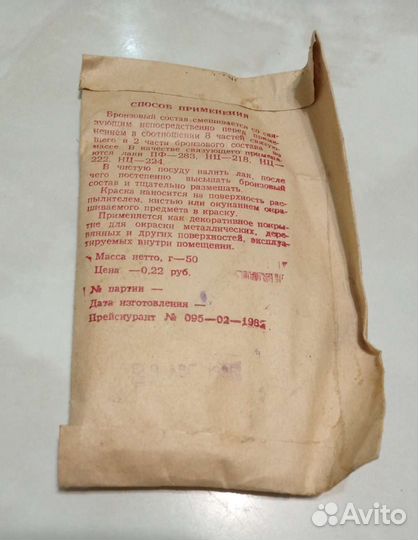 СПОСОБ ПРИМЕНЕНИЯ
Бронзовый состав смешивается со свя-
зующим непосредственно перед приме-
нением в соотношении 8 частей связую-
щего и 2 части бронзового состава по
массе. В качестве связующего применя-
ются лаки ПФ—283, НЦ—218, НЦ—
222, НЦ—224.
В чистую посуду налить лак, после
чего постепенно высыпать бронзовый
состав и тщательно размешать.
Краска наносится на поверхность рас-
пылителем, кистью или окунанием окра-
шиваемого предмета в краску.
Применяется как декоративное покры-
тие для окраски металлических, дере-
вянных и других поверхностей, эксплуа-
тируемых внутри помещения.
Масса нетто, г—50
Цена —0,22 руб.
№ партии —
Дата изготовления —
Прейскурант № 095—02—198
Avito